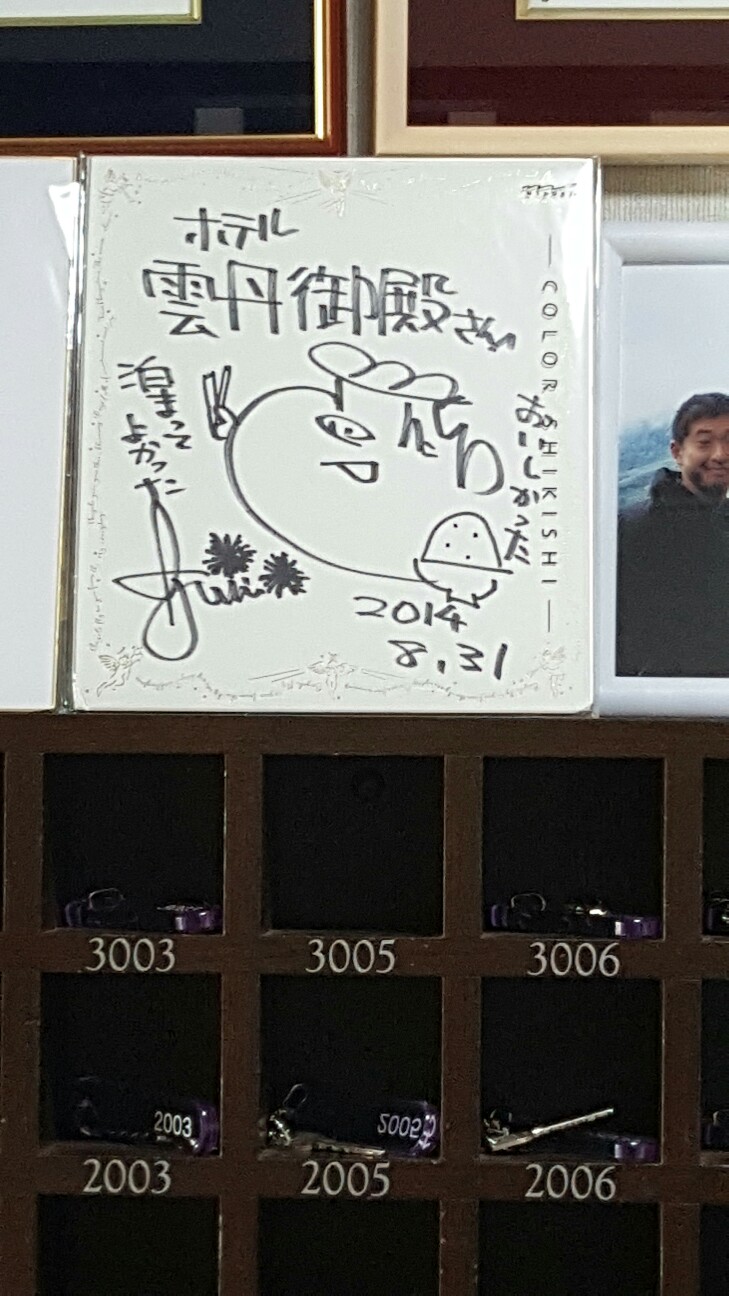 ホテル
雲丹御殿さん
COLOR SHIKISHI
おいしかった
泊まって
よかった
2014
8.31
3003
3005
3006
2003
2005
2003
2005
2006